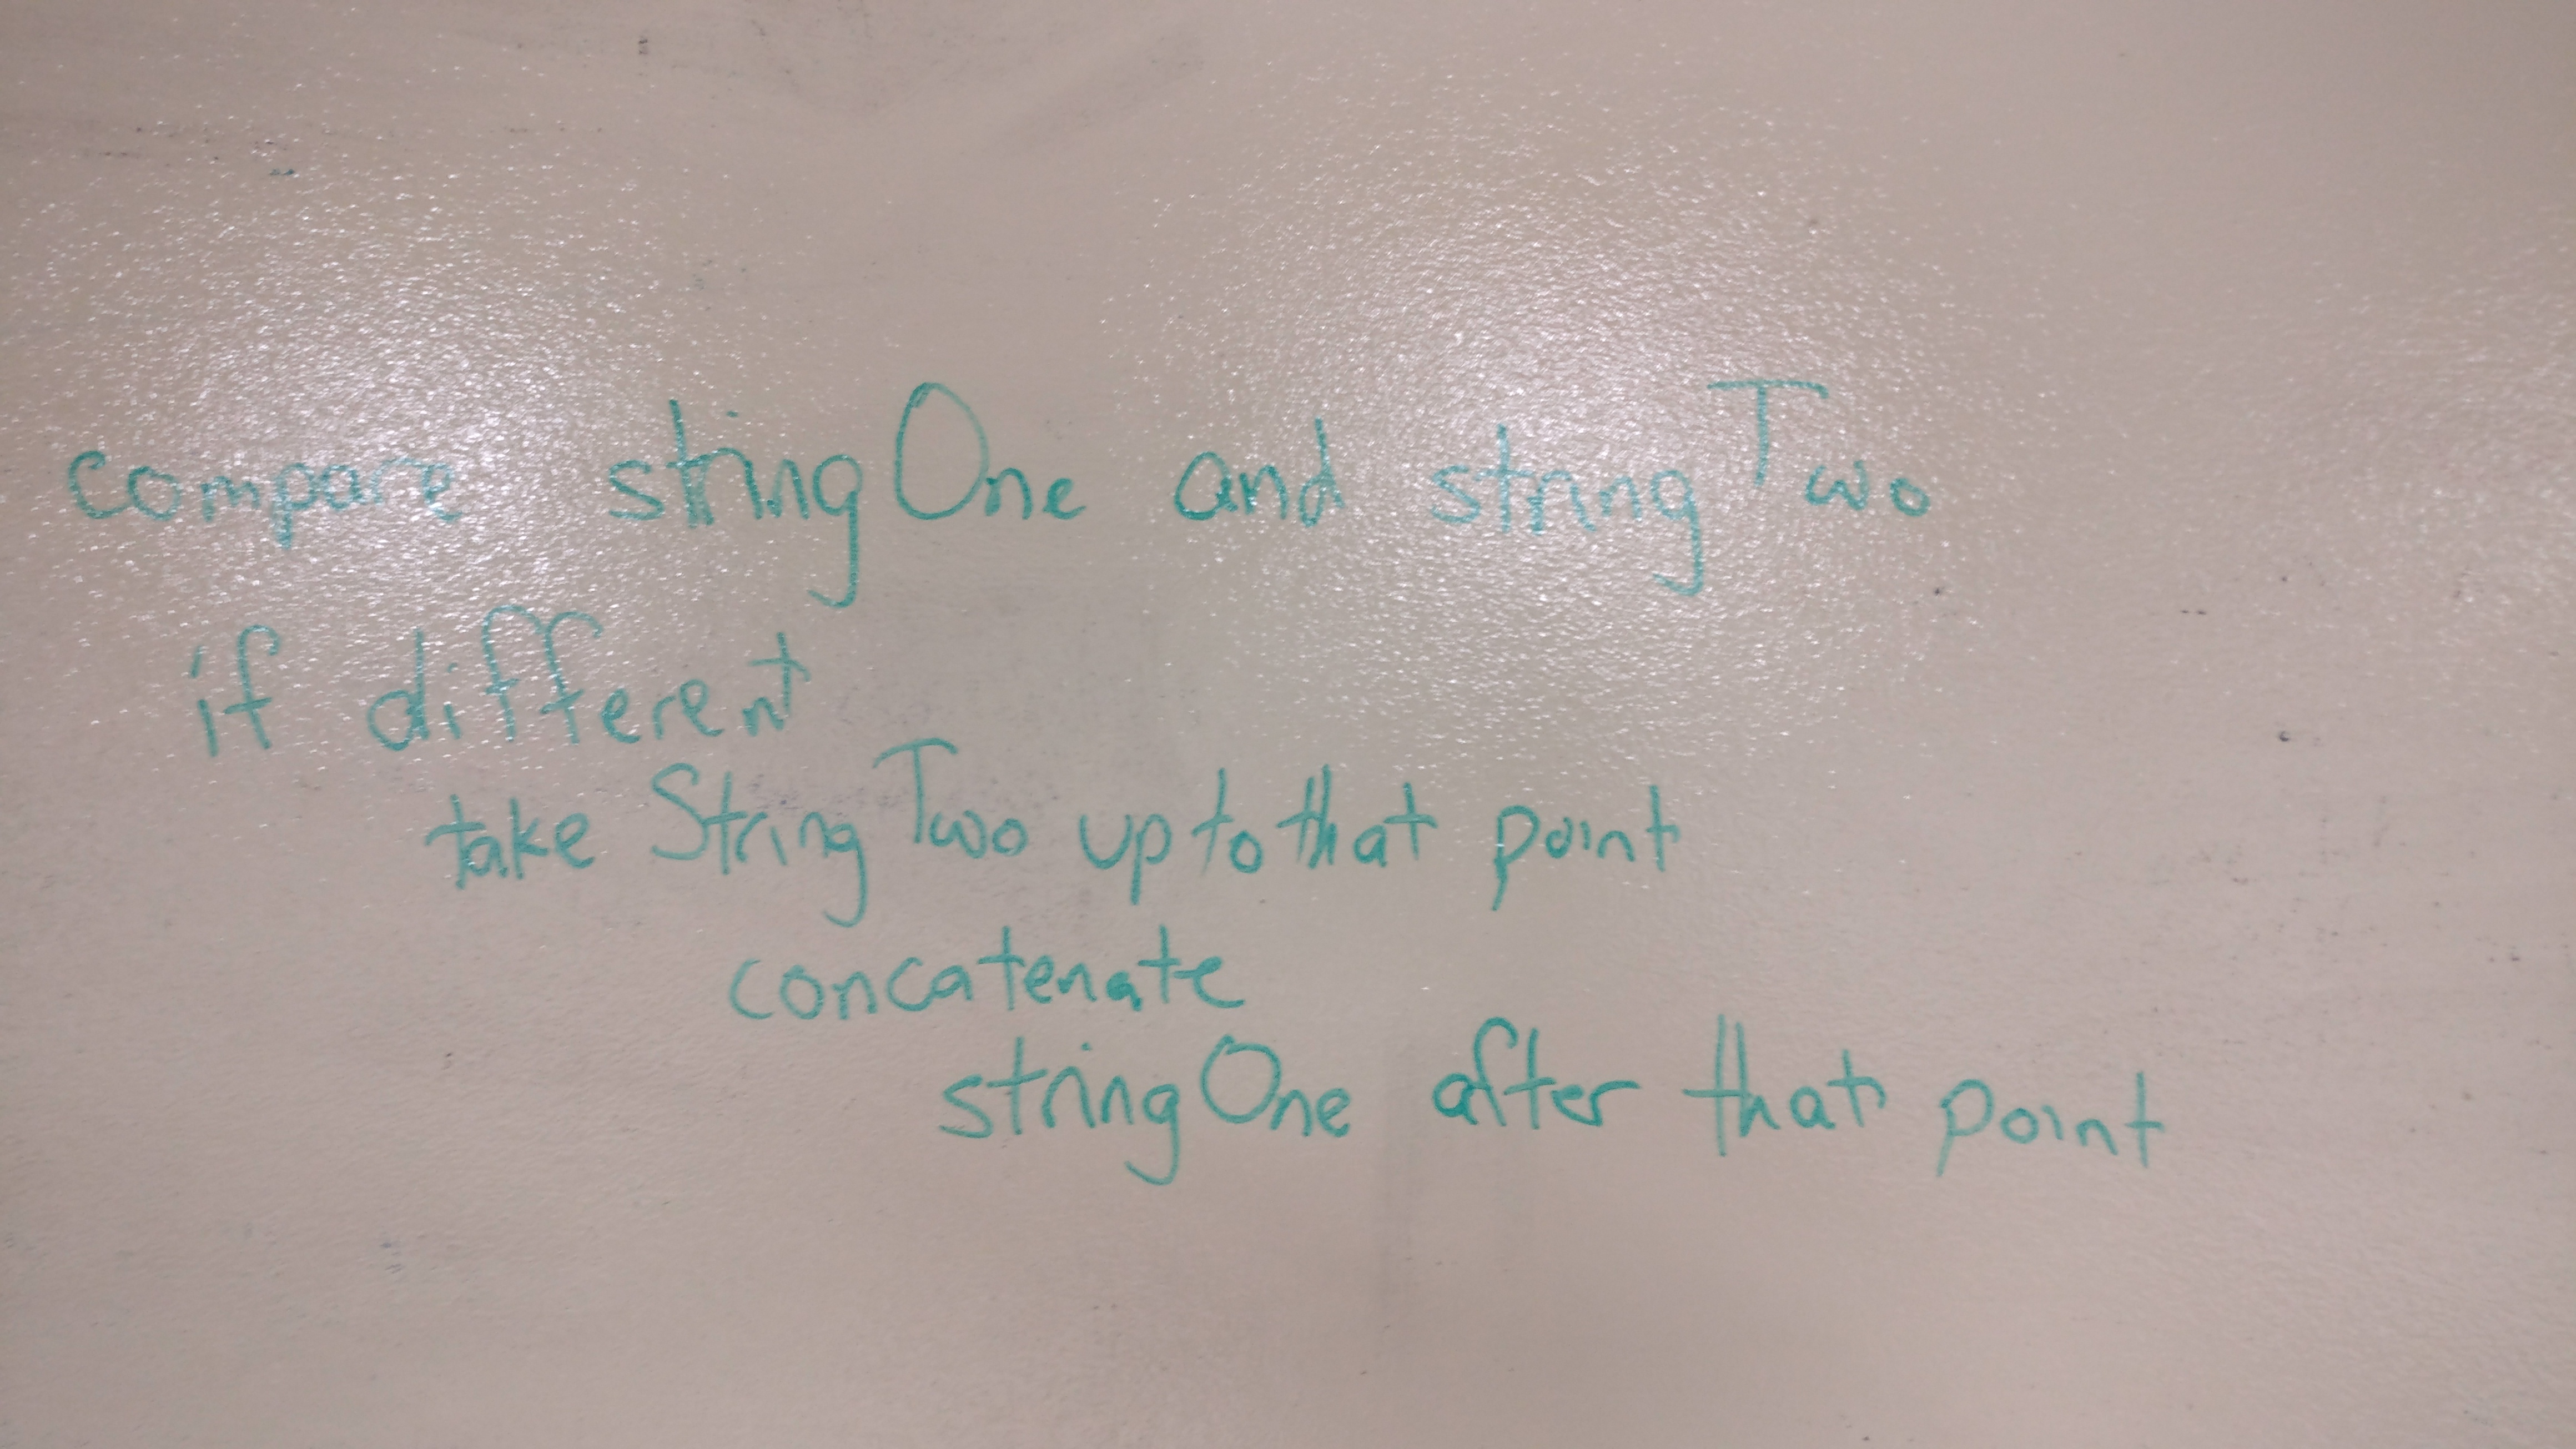 compare stringOne and stringTwo
if different
take StringTwo up to that point
concatenate
stringOne after that point